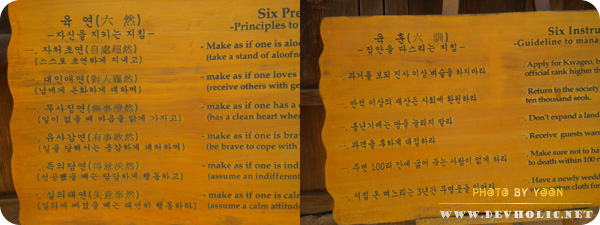 육 연(六 然)
-자신을 지키는 지침-
. 자처초연(自處超然)
(스스로 초연하게 지내고)
. 대인애연(對人靄然)
(남에게 온화하게 대하며)
. 무사징연(無事澄然)
(일이 없을 때 마음을 맑게 가지고)
. 유사감연(有事敢然)
(일을 당해서는 용감하게 대처하며)
. 득의담연(得意淡然)
(성공했을 때는 담담하게 행동하고)
. 실의태연(失意泰然)
(실의에 빠졌을 때는 태연히 행동하라)
Six Pre
-Principles to
- Make as if one is aloo
(take a stand of aloofn
- Make as if one loves
(receive others with ge
- Make as if one has a
(has a clear heart when
- Make as if one is brav
(be brave to cope with
- make as if one is indi
(assume an indifferent
- make as if one is calm
(assume a calm attitud
육 훈(六 訓)
-집안을 다스리는 지침-
. 과거를 보되 진사 이상 벼슬을 하지마라
. 만석 이상의 재산은 사회에 환원하라
. 흉년기에는 땅을 늘리지 말라
. 과객을 후하게 대접하라
. 주변 100리 안에 굶어 죽는 사람이 없게 하라
. 시집 온 며느리는 3년간 무명옷을 입어라
Six Instru
-Guideline to manag
. Apply for Kwageo, b
official rank higher th
. Return to the society
ten thousand seok.
. Don't expand a land
. Receive guests war
. Make sure not to hav
to death within 100 r
. Have a newly wedde
cotton cloth for
PHOTO BY YOON
WWW.DEVHOLIC.NET